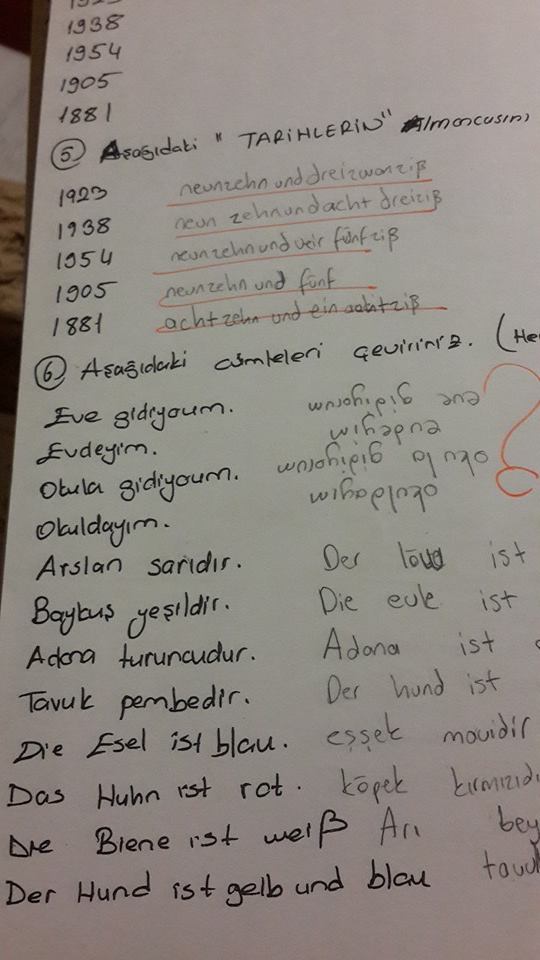 1938
1954
1905
1881
5 Aşağıdaki "TARİHLERİN" Almancasını
1923 neunzehn und dreizwanziß
1938 neun zehnundacht dreiziß
1954 neunzehnundveir fünfziß
1905 neunzehn und fünf
1881 achtzehn und ein achtziß
6 Aşağıdaki cümleleri çeviriniz. (He
Eve gidiyoum. eve gidiyorum
Evdeyim. evdeyim
Okula gidiyoum. okula gidiyorum
Okuldayım. okuldayım
Arslan sarıdır. Der löwe ist
Baykuş yeşildir. Die eule ist
Adana turuncudur. Adana ist
Tavuk pembedir. Der hund ist
Die Esel ist blau. eşşek mavidir
Das Huhn ist rot. köpek kırmızıdı
Die Biene ist weiß Arı bey
Der Hund ist gelb und blau tavu